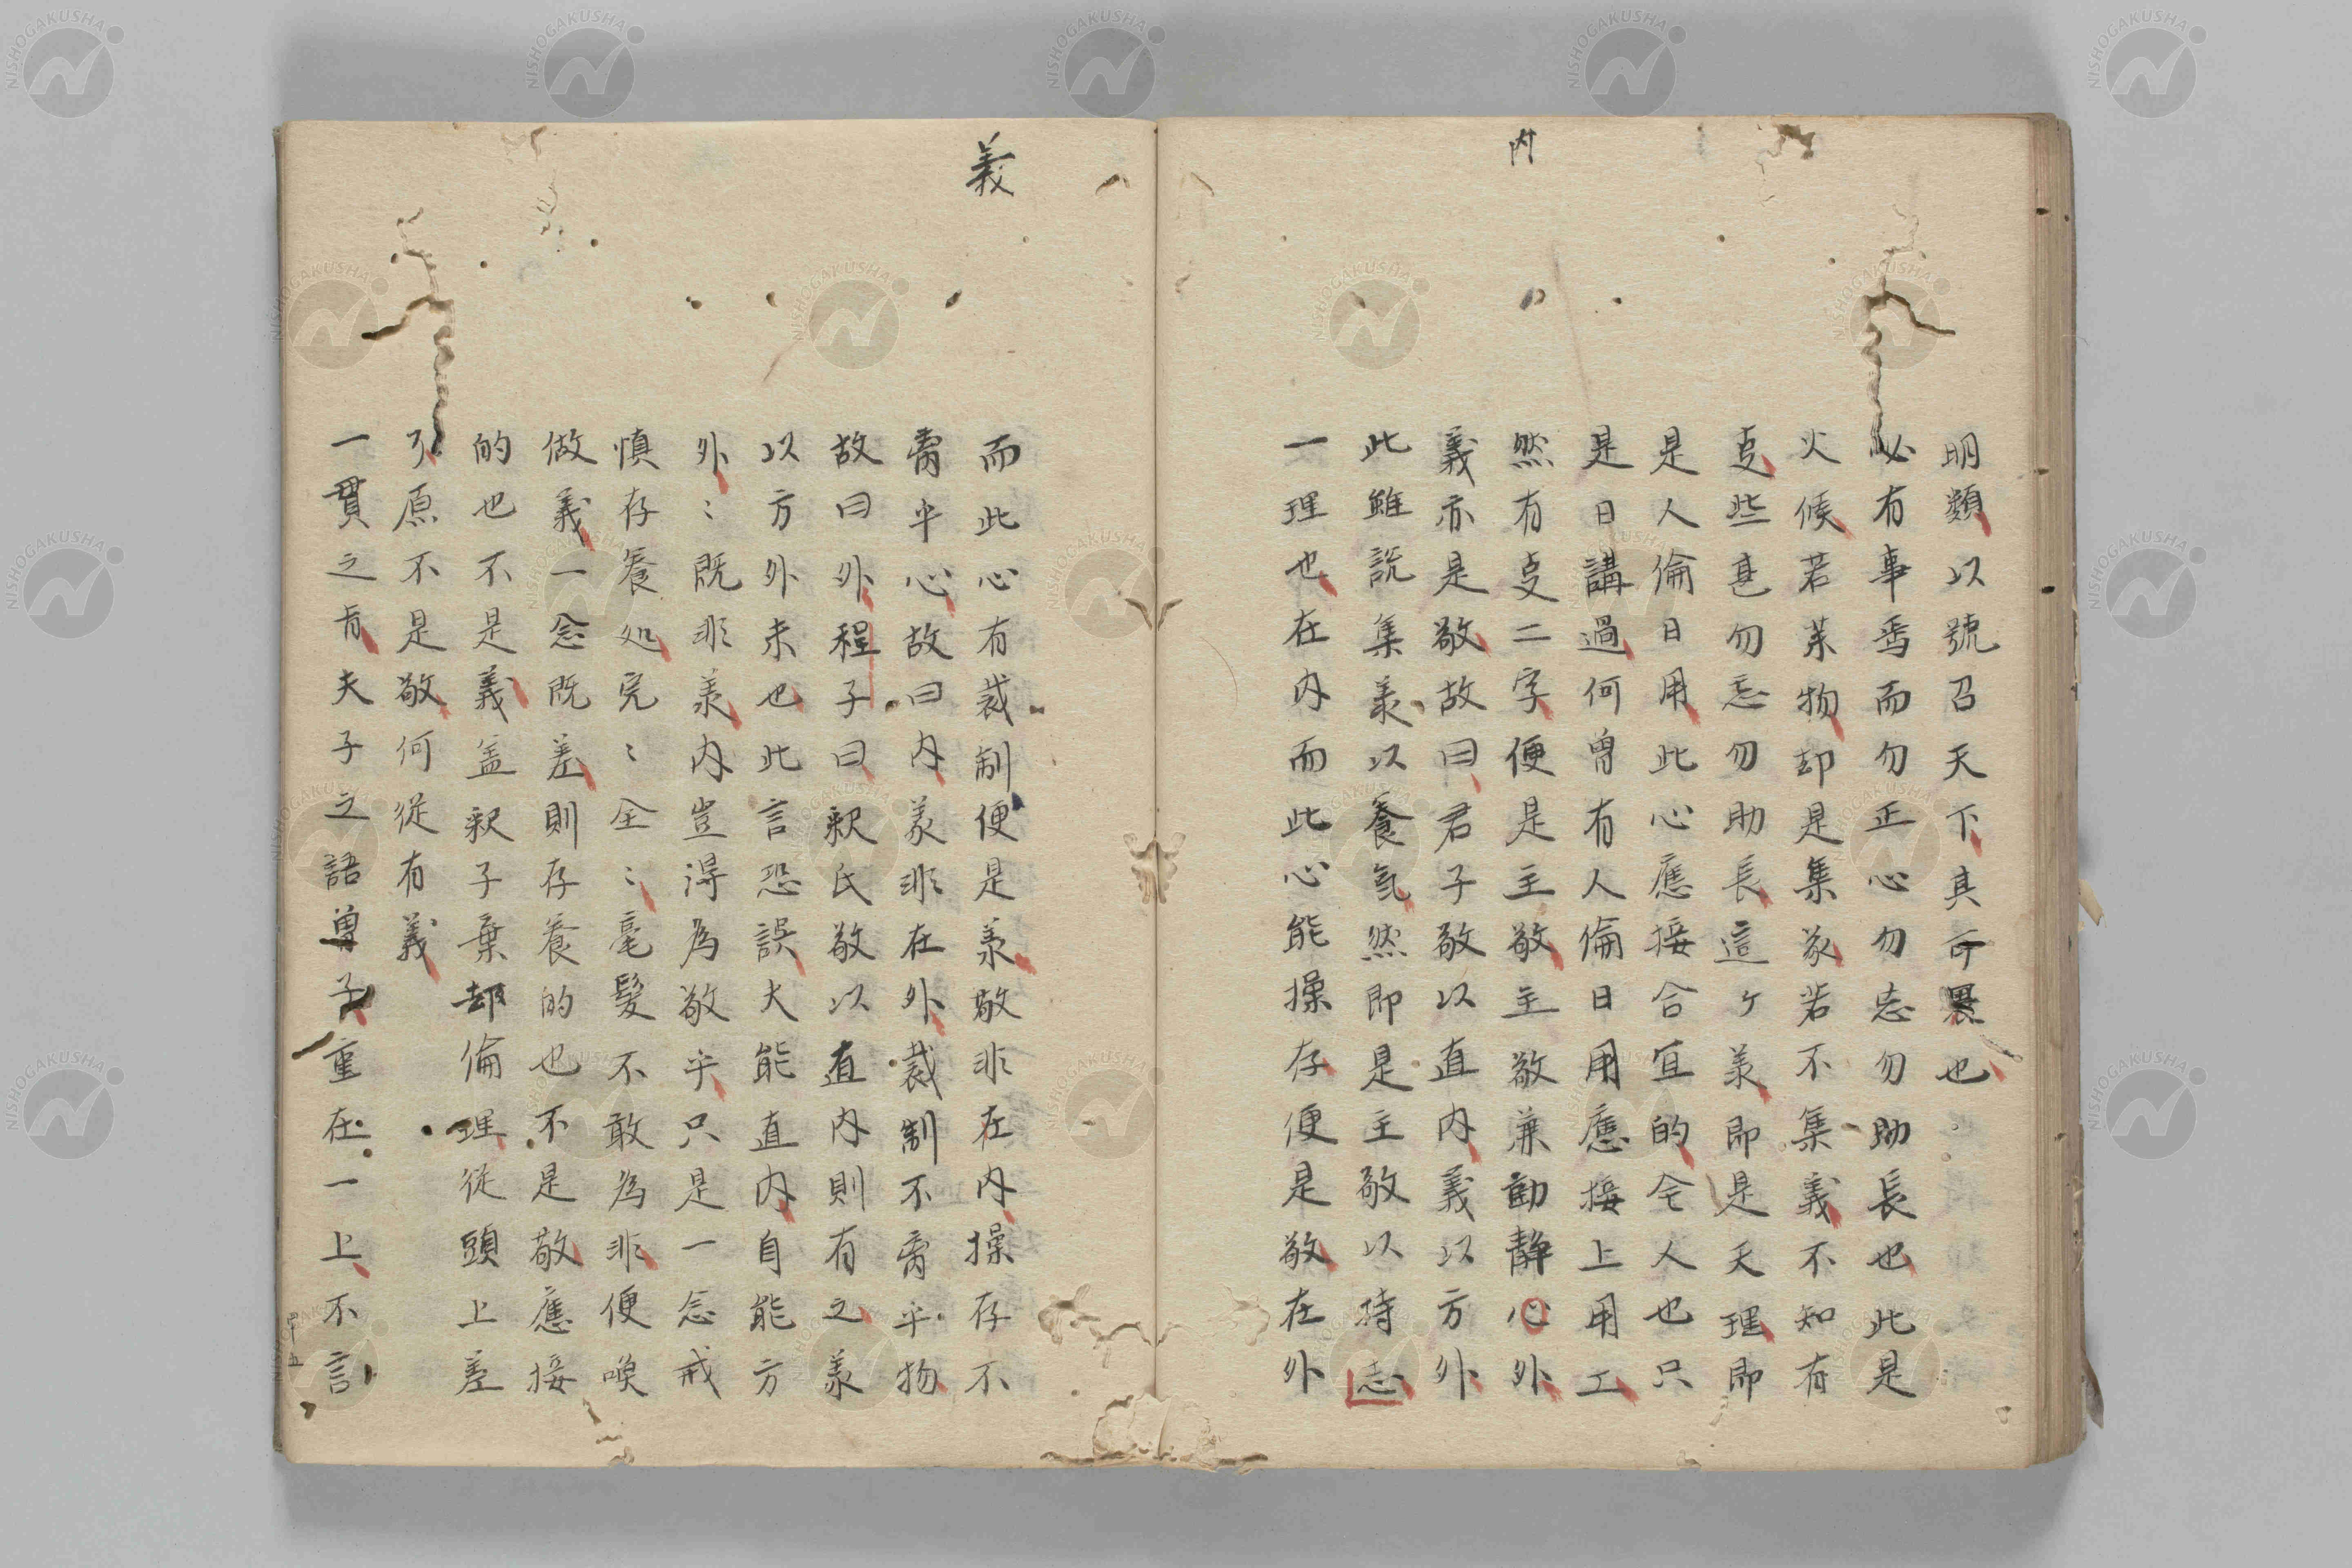 内
明類以號召天下其可畏也
必有事焉而勿正心勿忘勿助長也此是
火候若菜物却是集义若不集義不知有
叓些甚勿忘勿助長這ヶ义即是天理即
是人倫日用此心應接合宜的全人也只
是日講過何曾有人倫日用應接上用工
然有叓二字便是主敬主敬兼動静心外
義亦是敬故曰君子敬以直内義以方外
此雖説集义以養氣然即是主敬以持志
一理也在内而此心能操存便是敬在外
義
而此心有裁制便是义敬非在内操存不
脔乎心故曰内义非在外裁制不脔乎物
故曰外程子曰釈氏敬以直内則有之义
以方外未也此言恐誤夫能直内自能方
外〻既非义内豈得為敬乎只是一念戒
慎存養処完〻全〻毫髮不敢為非便喚
做義一念既差則存養的也不是敬應接
的也不是義盖釈子棄却倫理從頭上差
了原不是敬何從有義
一貫之肯夫子之語曽子重在一上不言
四十五